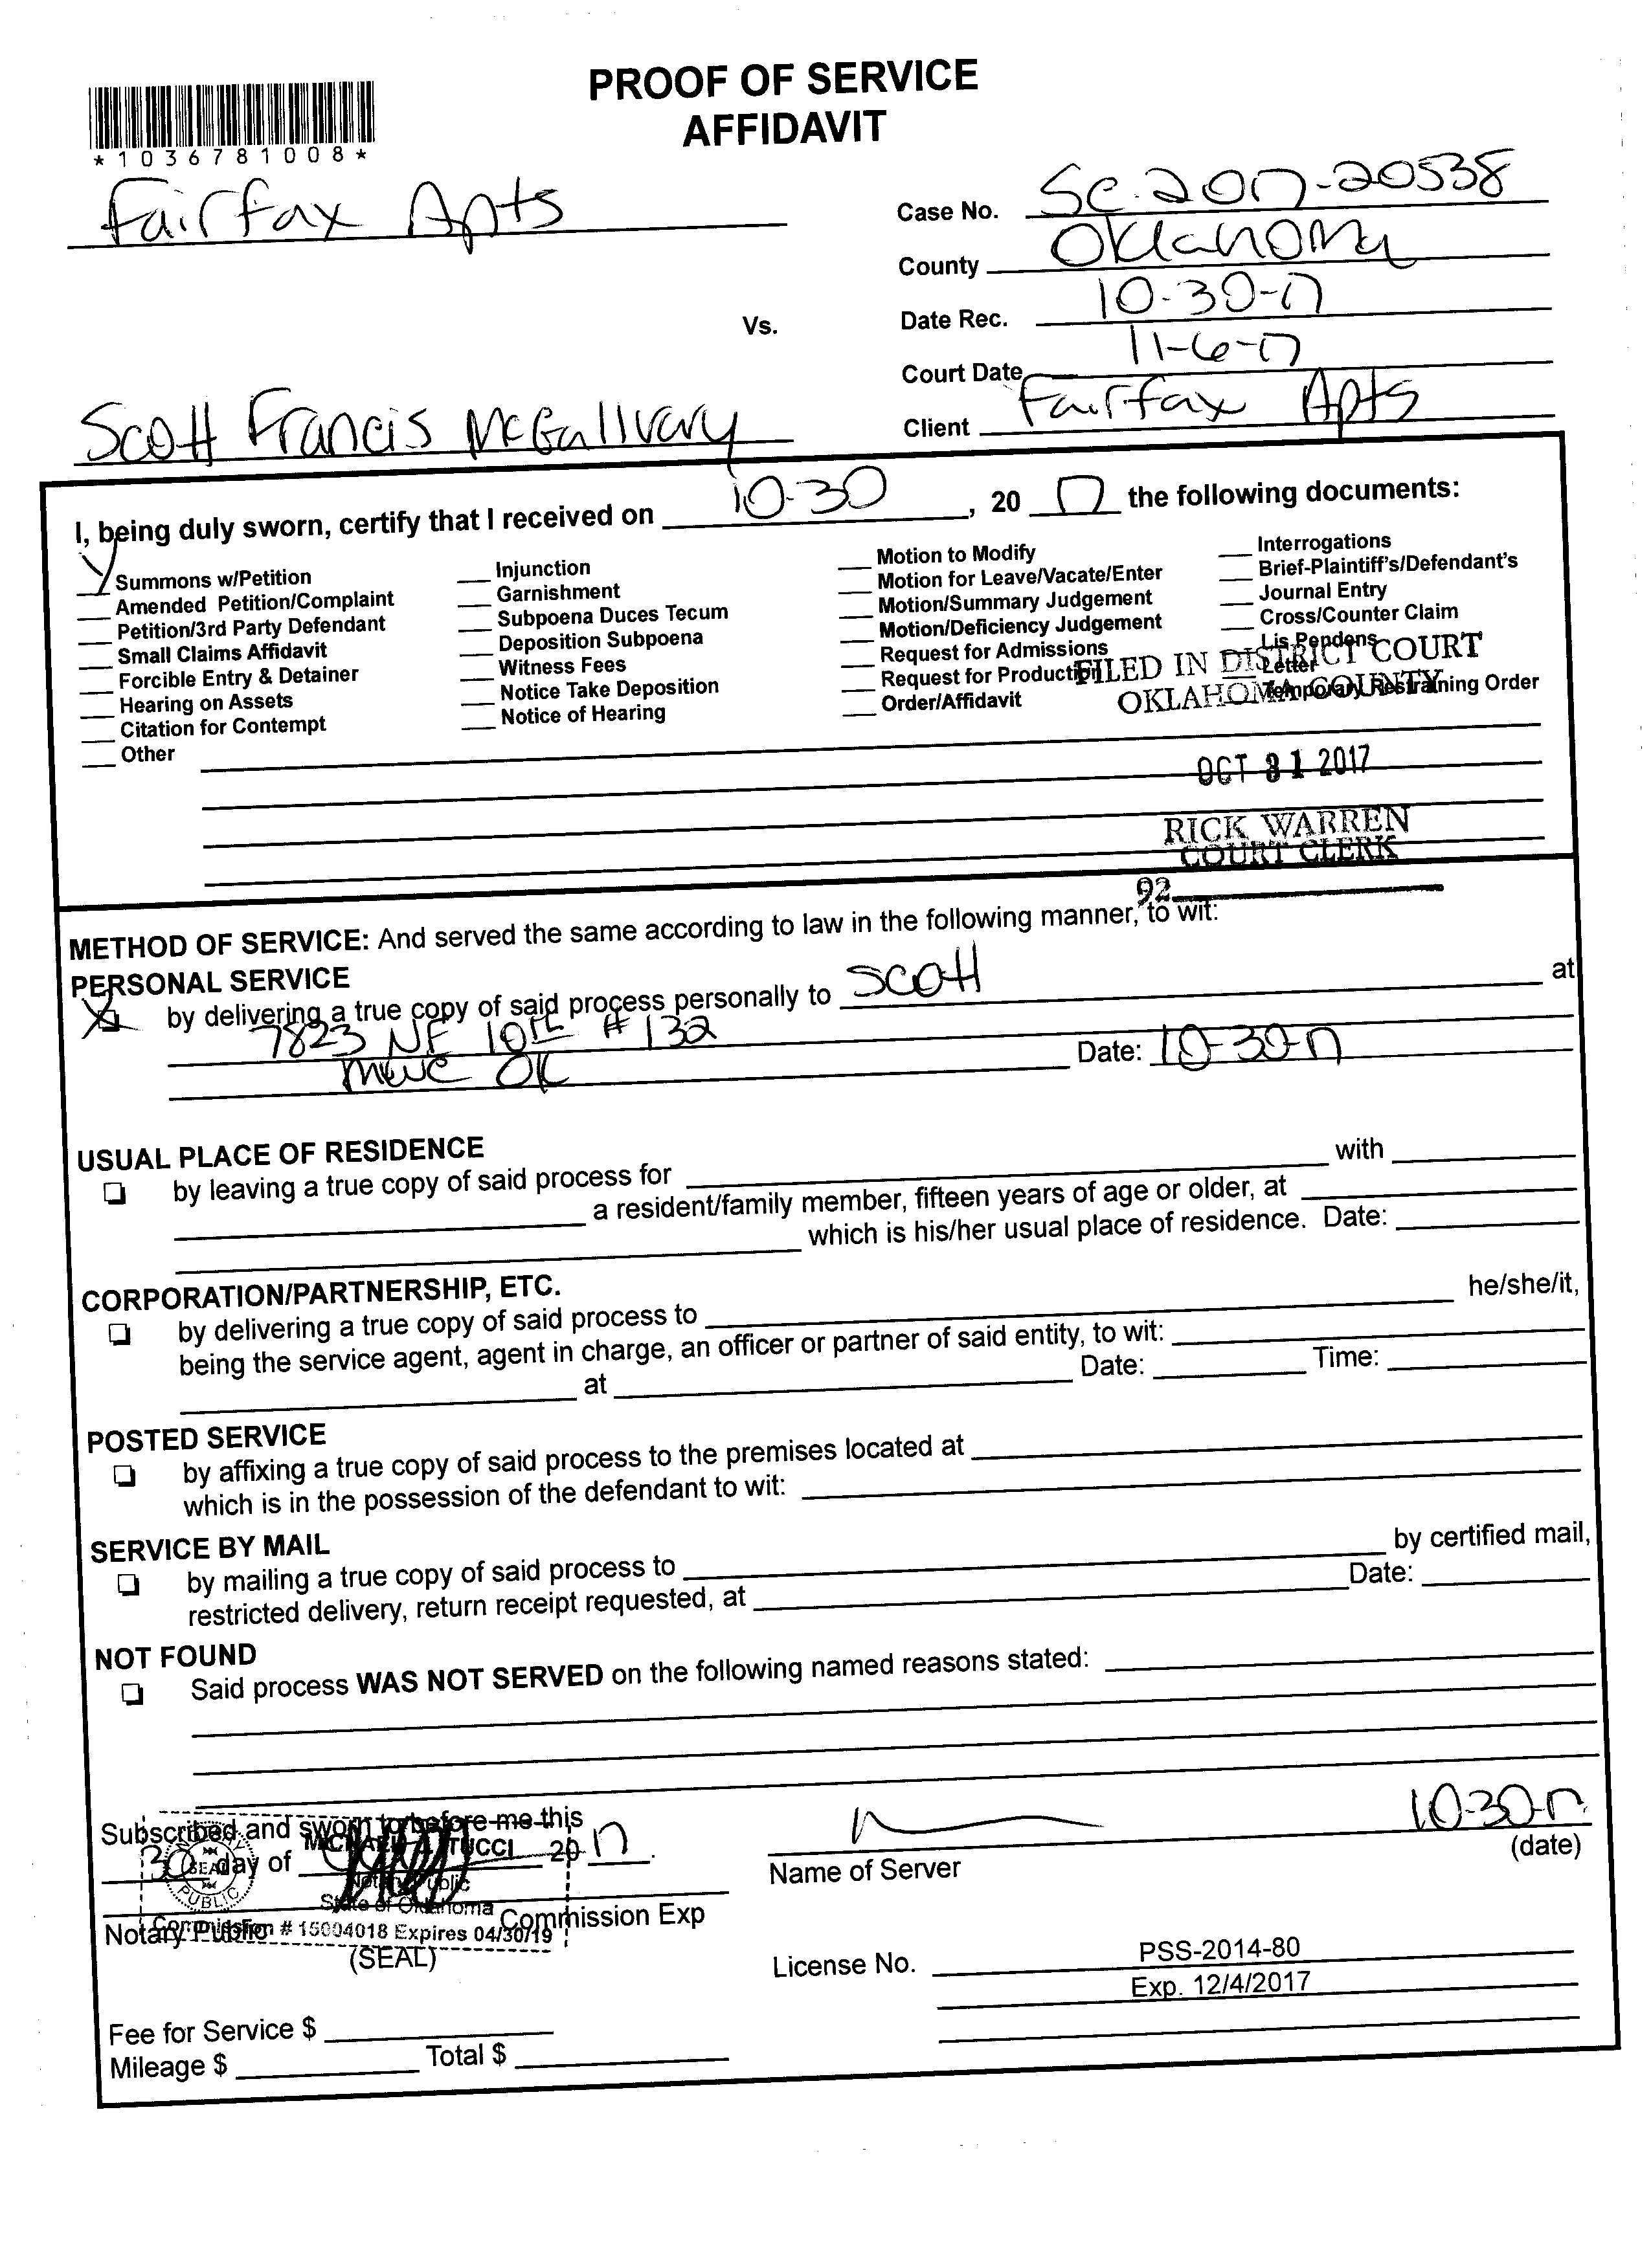 PROOF OF SERVICE
AFFIDAVIT
*1036781008*
Fairfax Apts
Case No. SC-2017-20538
County Oklahoma
Date Rec. 10-30-17
Vs.
Court Date 11-6-17
Client Fairfax Apts
Scott Francis McGallvary
I, being duly sworn, certify that I received on 10-30, 20 17 the following documents:
Summons w/Petition
Amended Petition/Complaint
Petition/3rd Party Defendant
Small Claims Affidavit
Forcible Entry & Detainer
Hearing on Assets
Citation for Contempt
Other
Injunction
Garnishment
Subpoena Duces Tecum
Deposition Subpoena
Witness Fees
Notice Take Deposition
Notice of Hearing
Motion to Modify
Motion for Leave/Vacate/Enter
Motion/Summary Judgement
Motion/Deficiency Judgement
Request for Admissions
Request for Production
Order/Affidavit
Interrogations
Brief-Plaintiff's/Defendant's
Journal Entry
Cross/Counter Claim
Lis Pendens
Letter
Temporary Restraining Order
FILED IN DISTRICT COURT
OKLAHOMA COUNTY
OCT 31 2017
RICK WARREN
COURT CLERK
92
METHOD OF SERVICE: And served the same according to law in the following manner, to wit:
PERSONAL SERVICE
by delivering a true copy of said process personally to Scott at
7823 NE 10th # 132
MWC OK Date: 10-30-17
USUAL PLACE OF RESIDENCE
by leaving a true copy of said process for with
a resident/family member, fifteen years of age or older, at
which is his/her usual place of residence. Date:
CORPORATION/PARTNERSHIP, ETC.
by delivering a true copy of said process to he/she/it,
being the service agent, agent in charge, an officer or partner of said entity, to wit:
at Date: Time:
POSTED SERVICE
by affixing a true copy of said process to the premises located at
which is in the possession of the defendant to wit:
SERVICE BY MAIL
by mailing a true copy of said process to by certified mail,
restricted delivery, return receipt requested, at Date:
NOT FOUND
Said process WAS NOT SERVED on the following named reasons stated:
Subscribed and sworn to before me this
30 day of 20 17.
TUCCI
Notary Public
State of Oklahoma
Commission # 15004018 Expires 04/30/19
Notary Public Commission Exp
(SEAL)
10-30-17
Name of Server (date)
License No. PSS-2014-80
Exp. 12/4/2017
Fee for Service $
Mileage $ Total $